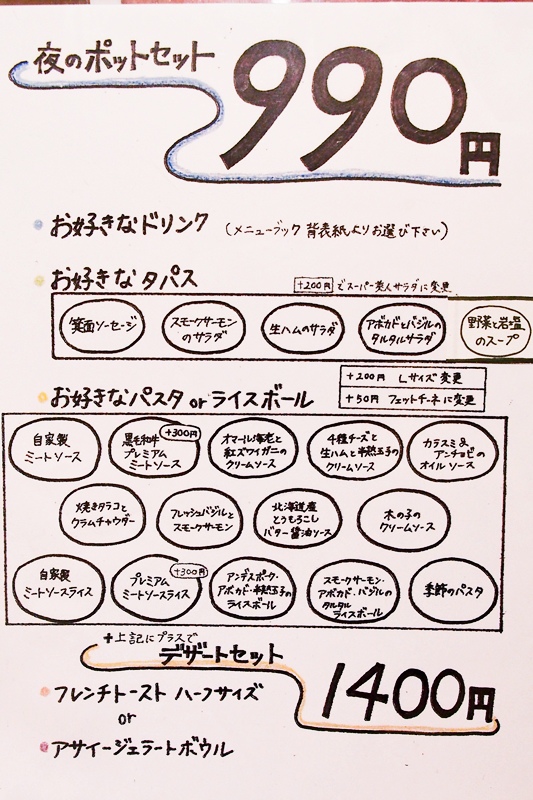 夜のポットセット
990円
お好きなドリンク (メニューブック 背表紙よりお選び下さい)
お好きなタパス
+200円 でスーパー美人サラダに変更
箕面ソーセージ
スモークサーモン
のサラダ
生ハムのサラダ
アボカドとバジルの
タルタルサラダ
野菜と岩塩
のスープ
お好きなパスタ or ライスボール
+200円 Lサイズ変更
+50円 フェットチーネに変更
自家製
ミートソース
黒毛和牛
プレミアム
ミートソース
+300円
オマール海老と
紅ズワイガニの
クリームソース
4種チーズと
生ハムと半熟玉子の
クリームソース
カラスミ&
アンチョビの
オイルソース
焼きタラコと
クラムチャウダー
フレッシュバジルと
スモークサーモン
北海道産
とうもろこし
バター醤油ソース
木の子の
クリームソース
自家製
ミートソースライス
プレミアム
ミートソースライス
+300円
アンデスポーク・
アボカド・半熟玉子の
ライスボール
スモークサーモン・
アボカド・バジルの
タルタル
ライスボール
季節のパスタ
+上記にプラスで
デザートセット
1400円
フレンチトースト ハーフサイズ
or
アサイージェラートボウル